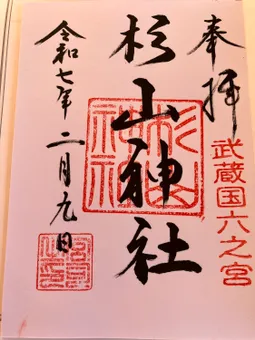 奉拝
武蔵国六之宮
杉山神社
杉山神社
令和七年二月九日
宮司之印